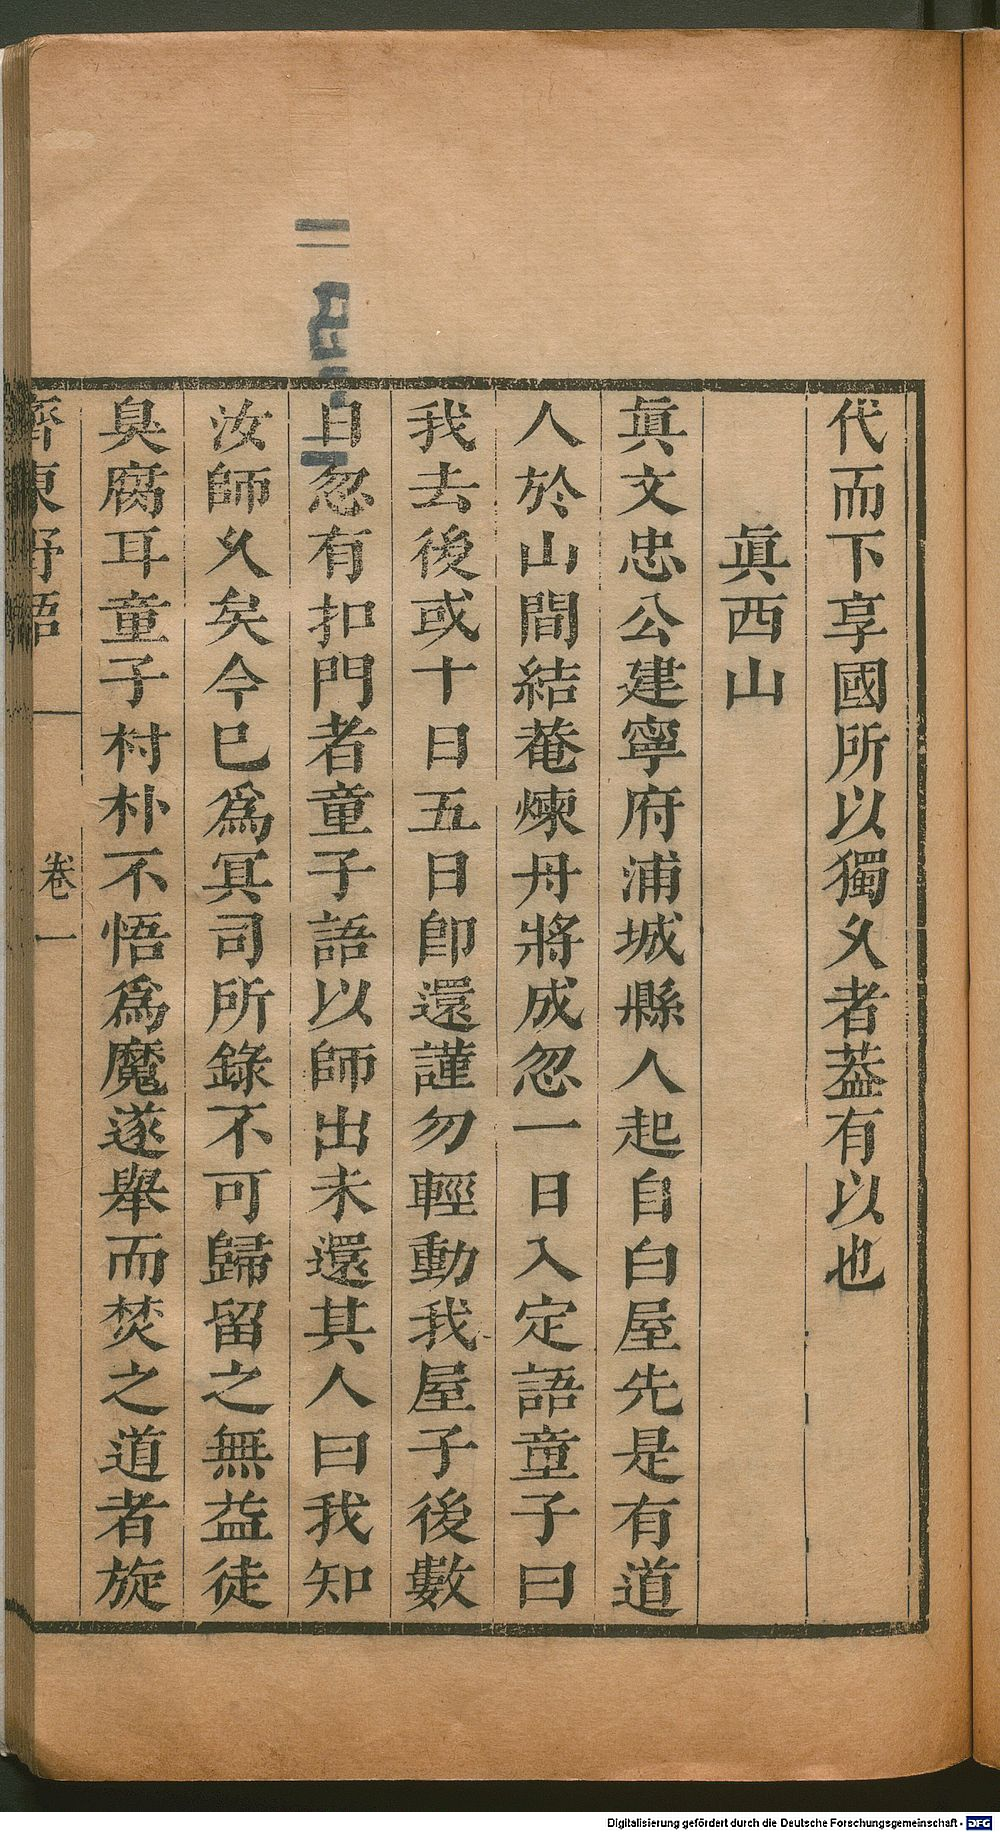 代而下享國所以獨久者葢有以也
眞西山
眞文忠公建寧府浦城縣人起自白屋先是有道
人於山間結菴煉丹將成忽一日入定語童子曰
我去後或十日五日卽還謹勿輕動我屋子後數
日忽有扣門者童子語以師出未還其人曰我知
汝師久矣今已爲冥司所錄不可歸留之無益徒
臭腐耳童子村朴不悟爲魔遂舉而焚之道者旋
齊東野語
卷一
Digitalisierung gefördert durch die Deutsche Forschungsgemeinschaft - DFG